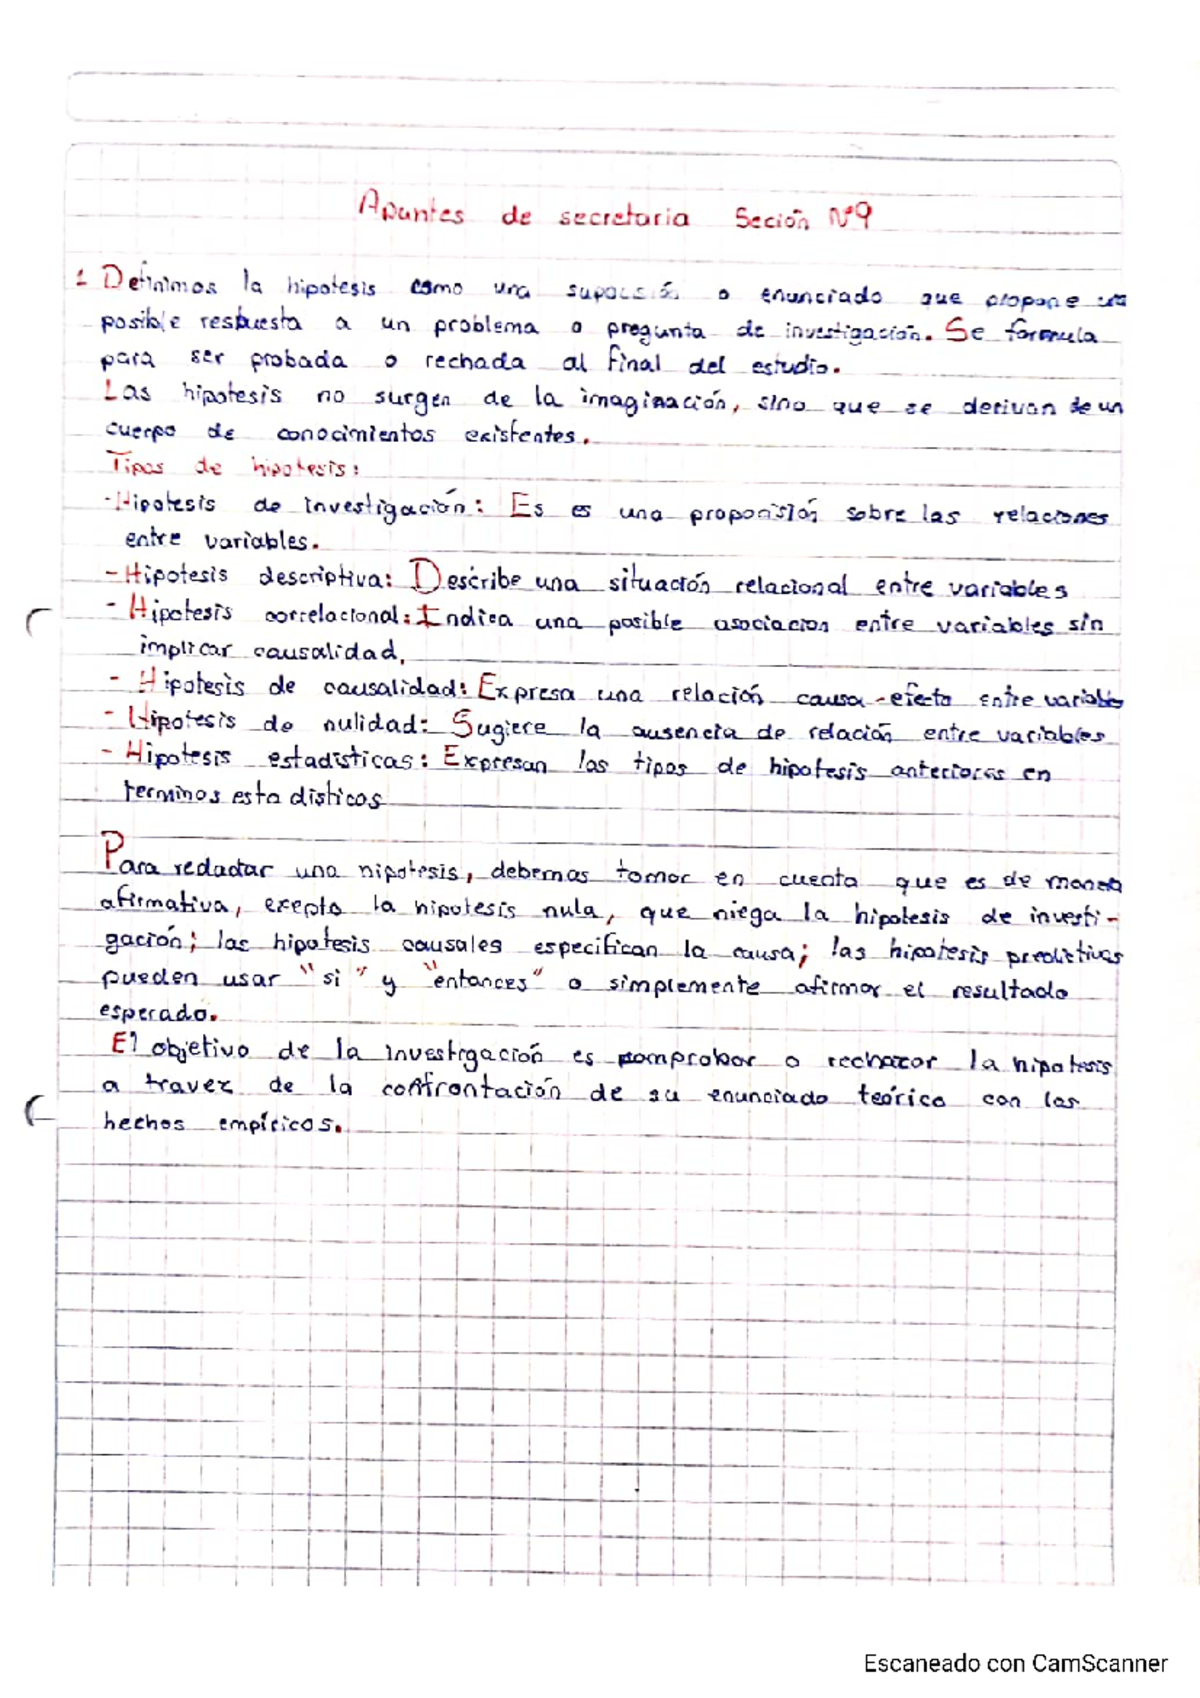 Apuntes de secretaria Seción N°9
1 Definimos la hipotesis como una suposición o enunciado que propone una
posible respuesta a un problema o pregunta de investigación. Se formula
para ser probada o rechada al final del estudio.
Las hipotesis no surgen de la imaginación, sino que se derivan de un
cuerpo de conocimientos existentes.
Tipos de hipotesis:
-Hipotesis de investigación: Es es una proporisión sobre las relaciones
entre variables.
-Hipotesis descriptiva: Describe una situación relacional entre variables
- Hipotesis correlacional: Indica una posible asociacion entre variables sin
implicar causalidad.
- Hipotesis de causalidad: Expresa una relación causa-efecto entre variables
- Hipotesis de nulidad: Sugiere la ausencia de relación entre variables
- Hipotesis estadisticas: Expresan los tipos de hipotesis anteriores en
terminos estadisticos
Para redactar una hipotesis, debemos tomar en cuenta que es de manera
afirmativa, exepto la hipotesis nula, que niega la hipotesis de investi-
gación; las hipotesis causales especifican la causa; las hipotesis predictivas
pueden usar "si" y "entonces" o simplemente afirmar el resultado
esperado.
El objetivo de la investigación es comprobar o rechazar la hipotesis
a travez de la confrontación de su enunciado teórico con los
hechos empíricos.
Escaneado con CamScanner